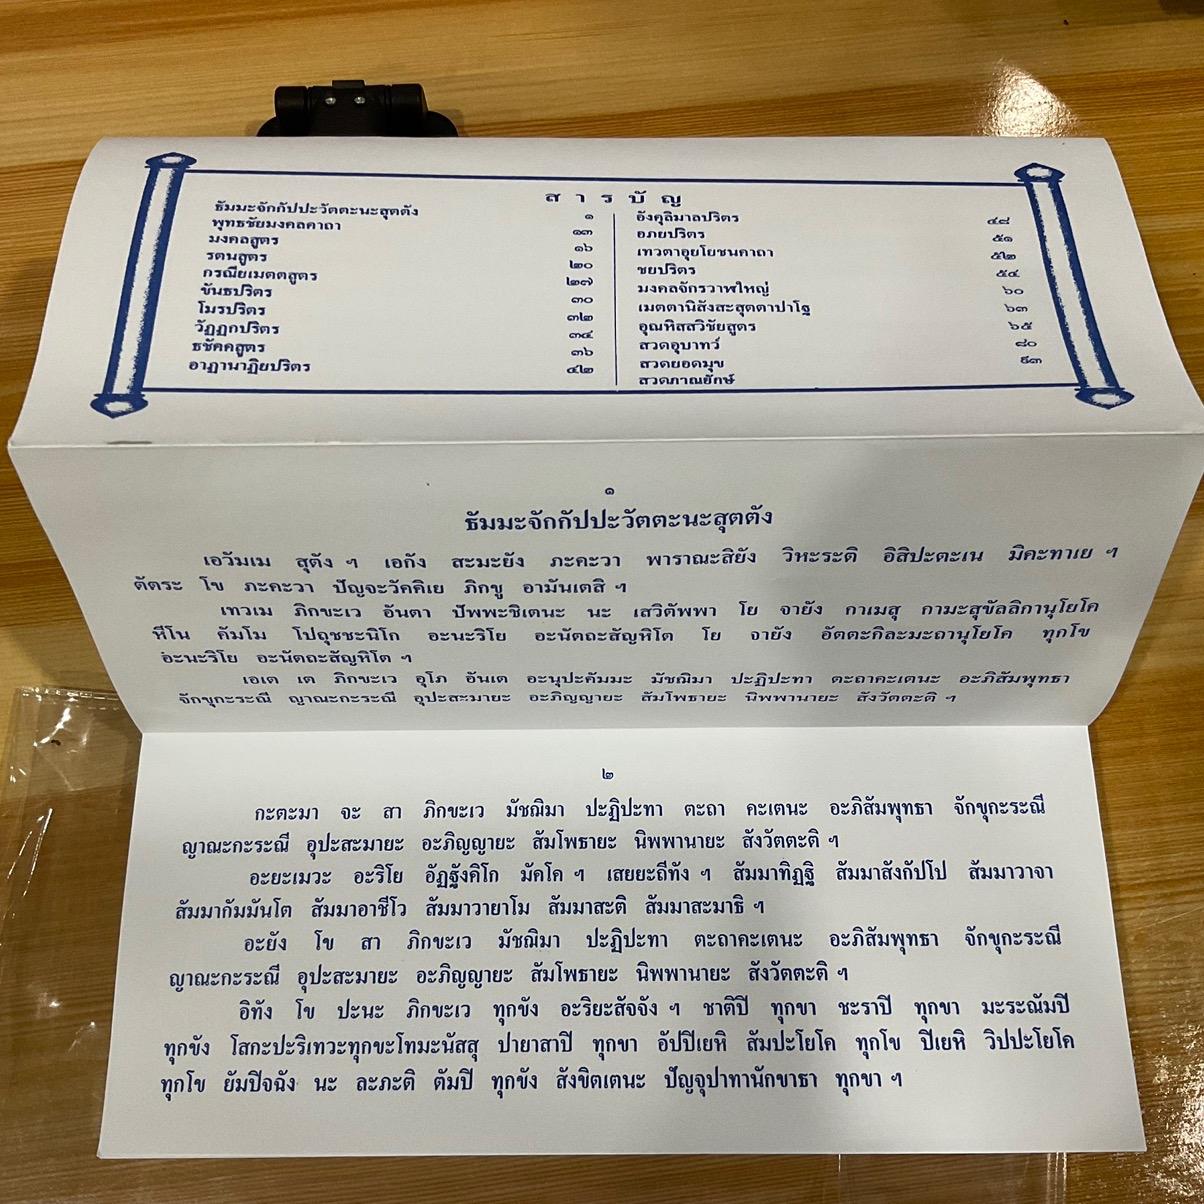 สารบัญ
ธัมมะจักกัปปะวัตตะนะสุตตัง ๑
พุทธชัยมงคลคาถา ๑๓
มงคลสูตร ๑๖
รตนสูตร ๒๐
กรณียเมตตสูตร ๒๗
ขันธปริตร ๓๐
โมรปริตร ๓๒
วัฏฏกปริตร ๓๔
ธชัคคสูตร ๓๖
อาฏานาฏิยปริตร ๔๒
อังคุลิมาลปริตร ๔๘
อภยปริตร ๕๑
เทวตาอุยโยชนคาถา ๕๒
ชยปริตร ๕๔
มงคลจักรวาฬใหญ่ ๖๐
เมตตานิสังสะสุตตาปาโฐ ๖๓
อุณหิสสวิชัยสูตร ๖๕
สวดอุบาทว์ ๘๐
สวดยอดมุข
สวดภาณยักษ์
๑
ธัมมะจักกัปปะวัตตะนะสุตตัง
เอวัมเม สุตัง ฯ เอกัง สะมะยัง ภะคะวา พาราณะสิยัง วิหะระติ อิสิปะตะเน มิคะทาเย ฯ
ตัตระ โข ภะคะวา ปัญจะวัคคิเย ภิกขู อามันเตสิ ฯ
เทวเม ภิกขะเว อันตา ปัพพะชิเตนะ นะ เสวิตัพพา โย จายัง กาเมสุ กามะสุขัลลิกานุโยโค
หีโน คัมโม โปถุชชะนิโก อะนะริโย อะนัตถะสัญหิโต โย จายัง อัตตะกิละมะถานุโยโค ทุกโข
อะนะริโย อะนัตถะสัญหิโต ฯ
เอเต เต ภิกขะเว อุโภ อันเต อะนุปะคัมมะ มัชฌิมา ปะฏิปะทา ตะถาคะเตนะ อะภิสัมพุทธา
จักขุกะระณี ญาณะกะระณี อุปะสะมายะ อะภิญญายะ สัมโพธายะ นิพพานายะ สังวัตตะติ ฯ
๒
กะตะมา จะ สา ภิกขะเว มัชฌิมา ปะฏิปะทา ตะถา คะเตนะ อะภิสัมพุทธา จักขุกะระณี
ญาณะกะระณี อุปะสะมายะ อะภิญญายะ สัมโพธายะ นิพพานายะ สังวัตตะติ ฯ
อะยะเมวะ อะริโย อัฏฐังคิโก มัคโค ฯ เสยยะถีทัง ฯ สัมมาทิฏฐิ สัมมาสังกัปโป สัมมาวาจา
สัมมากัมมันโต สัมมาอาชีโว สัมมาวายาโม สัมมาสะติ สัมมาสะมาธิ ฯ
อะยัง โข สา ภิกขะเว มัชฌิมา ปะฏิปะทา ตะถาคะเตนะ อะภิสัมพุทธา จักขุกะระณี
ญาณะกะระณี อุปะสะมายะ อะภิญญายะ สัมโพธายะ นิพพานายะ สังวัตตะติ ฯ
อิทัง โข ปะนะ ภิกขะเว ทุกขัง อะริยะสัจจัง ฯ ชาติปิ ทุกขา ชะราปิ ทุกขา มะระณัมปิ
ทุกขัง โสกะปะริเทวะทุกขะโทมะนัสสุ ปายาสาปิ ทุกขา อัปปิเยหิ สัมปะโยโค ทุกโข ปิเยหิ วิปปะโยโค
ทุกโข ยัมปิจฉัง นะ ละภะติ ตัมปิ ทุกขัง สังขิตเตนะ ปัญจุปาทานักขาธา ทุกขา ฯ